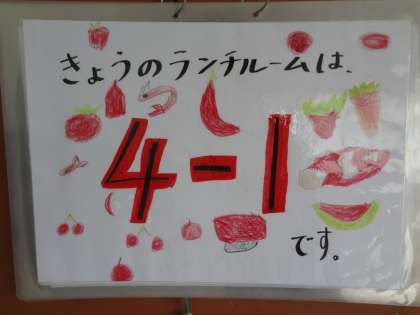 きょうのランチルームは、
4-1
です。